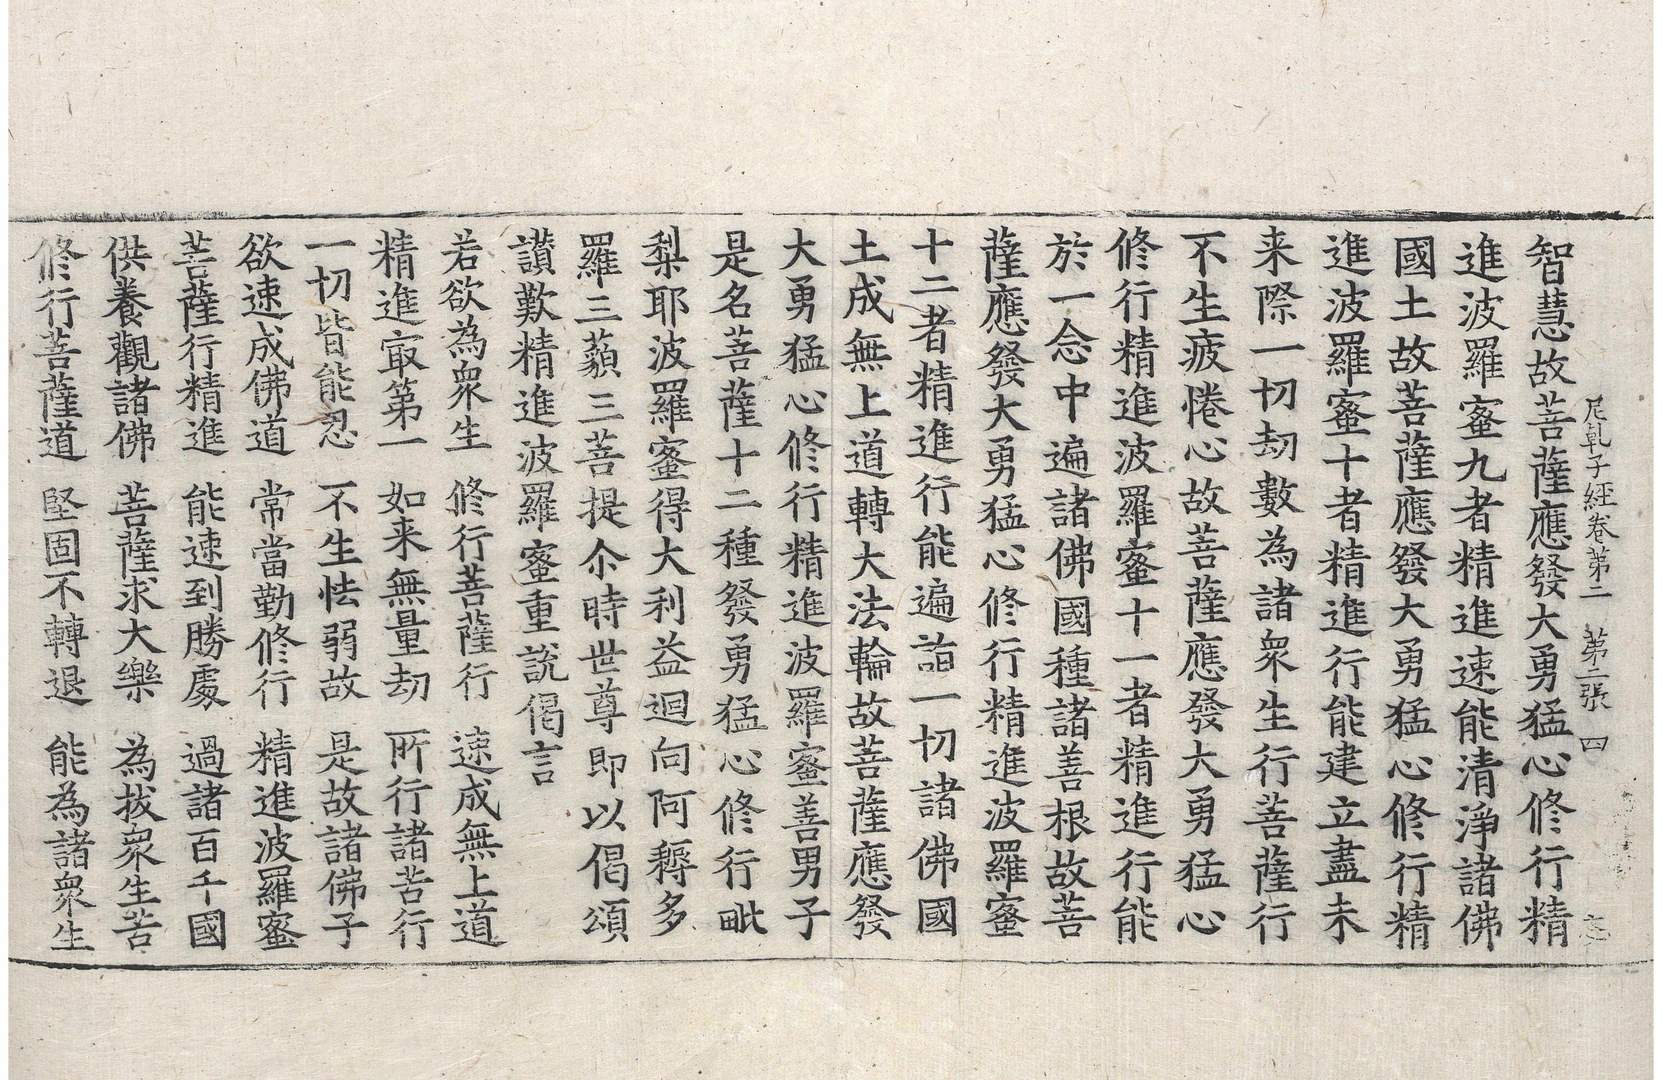 尼乹子經卷第二 第二張 四
智慧故菩薩應發大勇猛心修行精
進波羅蜜九者精進速能清淨諸佛
國土故菩薩應發大勇猛心修行精
進波羅蜜十者精進行能建立盡未
来際一切劫數為諸衆生行菩薩行
不生疲惓心故菩薩應發大勇猛心
修行精進波羅蜜十一者精進行能
於一念中遍諸佛國種諸善根故菩
薩應發大勇猛心修行精進波羅蜜
十二者精進行能遍詣一切諸佛國
土成無上道轉大法輪故菩薩應發
大勇猛心修行精進波羅蜜善男子
是名菩薩十二種發勇猛心修行毗
梨耶波羅蜜得大利益迴向阿耨多
羅三藐三菩提尒時世尊即以偈頌
讃歎精進波羅蜜重說偈言
若欲為衆生 修行菩薩行 速成無上道
精進㝡第一 如来無量劫 所行諸苦行
一切皆能忍 不生怯弱故 是故諸佛子
欲速成佛道 常當勤修行 精進波羅蜜
菩薩行精進 能速到勝處 過諸百千國
供養觀諸佛 菩薩求大樂 為拔衆生苦
修行菩薩道 堅固不轉退 能為諸衆生